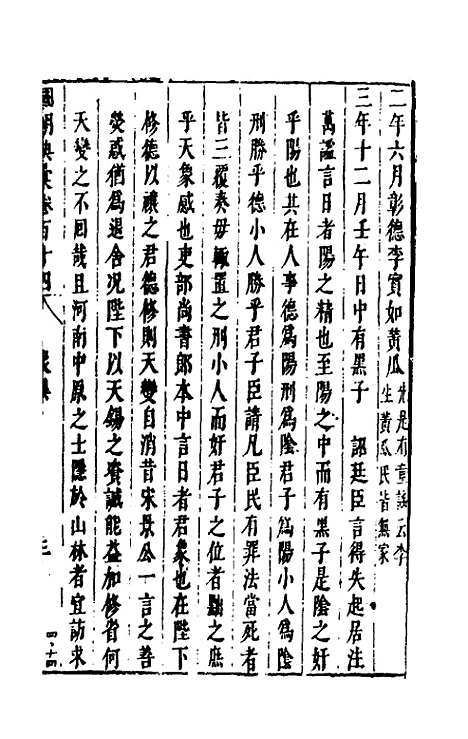 二年六月彰德李實如黃瓜先是有童謠云李生黃瓜民皆無家
三年十二月壬午日中有黑子　詔廷臣言得失起居注
萬謐言日者陽之精也至陽之中而有黑子是陰之奸
乎陽也其在人事德為陽刑為陰君子為陽小人為陰
刑勝乎德小人勝乎君子臣請凡臣民有罪法當死者
皆三覆奏毋輒置之刑小人而奸君子之位者黜之庶
乎天象感也吏部尚書郎本中言日者君象也在陛下
修德以禳之君德修則天變自消昔宋景公一言之善
熒惑猶為退舍况陛下以天錫之資誠能益加修省何
天變之不回哉且河南中原之士隱於山林者宜訪求
國朝典彙卷百十四　三
四十四